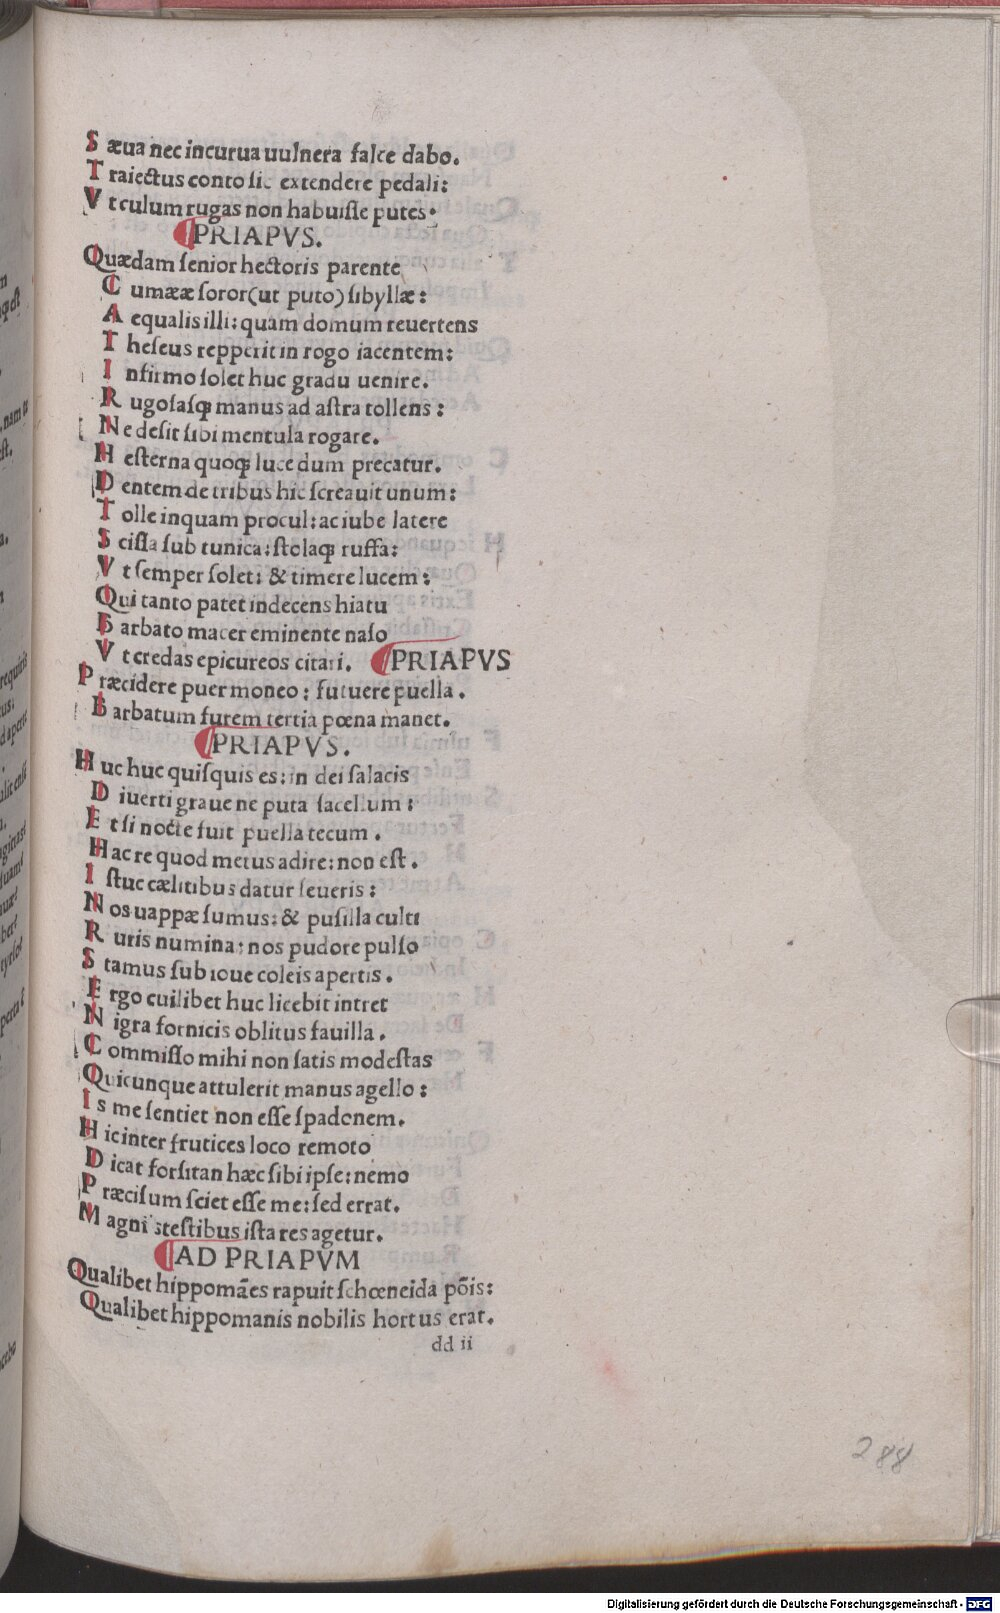 Sæua nec incurua uulnera falce dabo.
Traiectus conto sic extendere pedali:
Vt culum rugas non habuisse putes.
PRIAPVS.
Quædam senior hectoris parente
Cumææ soror(ut puto)sibyllæ:
Aequalis illi: quam domum reuertens
Theseus repperit in rogo iacentem:
Infirmo solet huc gradu uenire.
Rugosasq; manus ad astra tollens:
Ne desit sibi mentula rogare.
Hesterna quoq; luce dum precatur.
Dentem de tribus hic screauit unum:
Tolle inquam procul: ac iube latere
Scissa sub tunica: stolaq; ruffa:
Vt semper solet: & timere lucem:
Qui tanto patet indecens hiatu
Barbato macer eminente naso
Vt credas epicureos citari. PRIAPVS
Præcidere puer moneo: futuere puella.
Barbatum furem tertia pœna manet.
PRIAPVS.
Huc huc quisquis es: in dei salacis
Diuerti graue ne puta sacellum:
Et si nocte fuit puella tecum.
Hac re quod metus adire: non est.
Istuc cælitibus datur seueris:
Nos uappæ sumus: & pusilla culti
Ruris numina: nos pudore pulso
Stamus sub ioue coleis apertis.
Ergo cuilibet huc licebit intret
Nigra fornicis oblitus fauilla.
Commisso mihi non satis modestas
Quicunque attulerit manus agello:
Is me sentiet non esse spadonem.
Hic inter frutices loco remoto
Dicat forsitan hæc sibi ipse: nemo
Præcisum sciet esse me: sed errat.
Magnis testibus ista res agetur.
AD PRIAPVM
Qualibet hippomães rapuit schœneida põis:
Qualibet hippomanis nobilis hortus erat.
dd ii
288
Digitalisierung gefördert durch die Deutsche Forschungsgemeinschaft - DFG